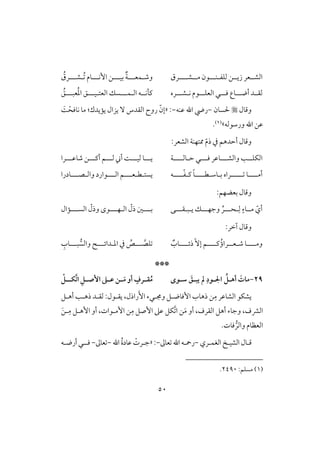 الشعر زين للفنون مشرق وشمعة بين الأنام تشرق
لقد أضاع في العلوم نشره كأنه المسك العتيق المعبق
وقال ﷺ لحسان -رضي الله عنه-: «إن روح القدس لا يزال يؤيدك؛ ما نافحت
عن الله ورسوله»(١).
وقال أحدهم في ذم ممتهنة الشعر:
الكلب والشاعر في حالة يا ليت أني لم أكن شاعرا
أما تراه باسطاً كفه يستطعم الوارد والصادرا
وقال بعضهم:
أي ماء لحر وجهك يبقى بين ذل الهوى وذل السؤال
وقال آخر:
وما شعراؤكم إلا ذئاب تلصص في المدائح والسباب
***
٢٩- مات أهل الجود لم يبق سوى مقرف أو من على الأصل اتكل
يشكو الشاعر من ذهاب الأفاضل ومجيء الأراذل، يقول: لقد ذهب أهل
الشرف، وجاء أهل القرف، أو من اتكل على الأصل من الأموات، أو الأهل من
العظام والرفات.
قال الشيخ الغمري -رحمه الله تعالى-: «جرت عادة الله -تعالى- في أرضه
(١) مسلم: ٢٤٩٠.
٥٠